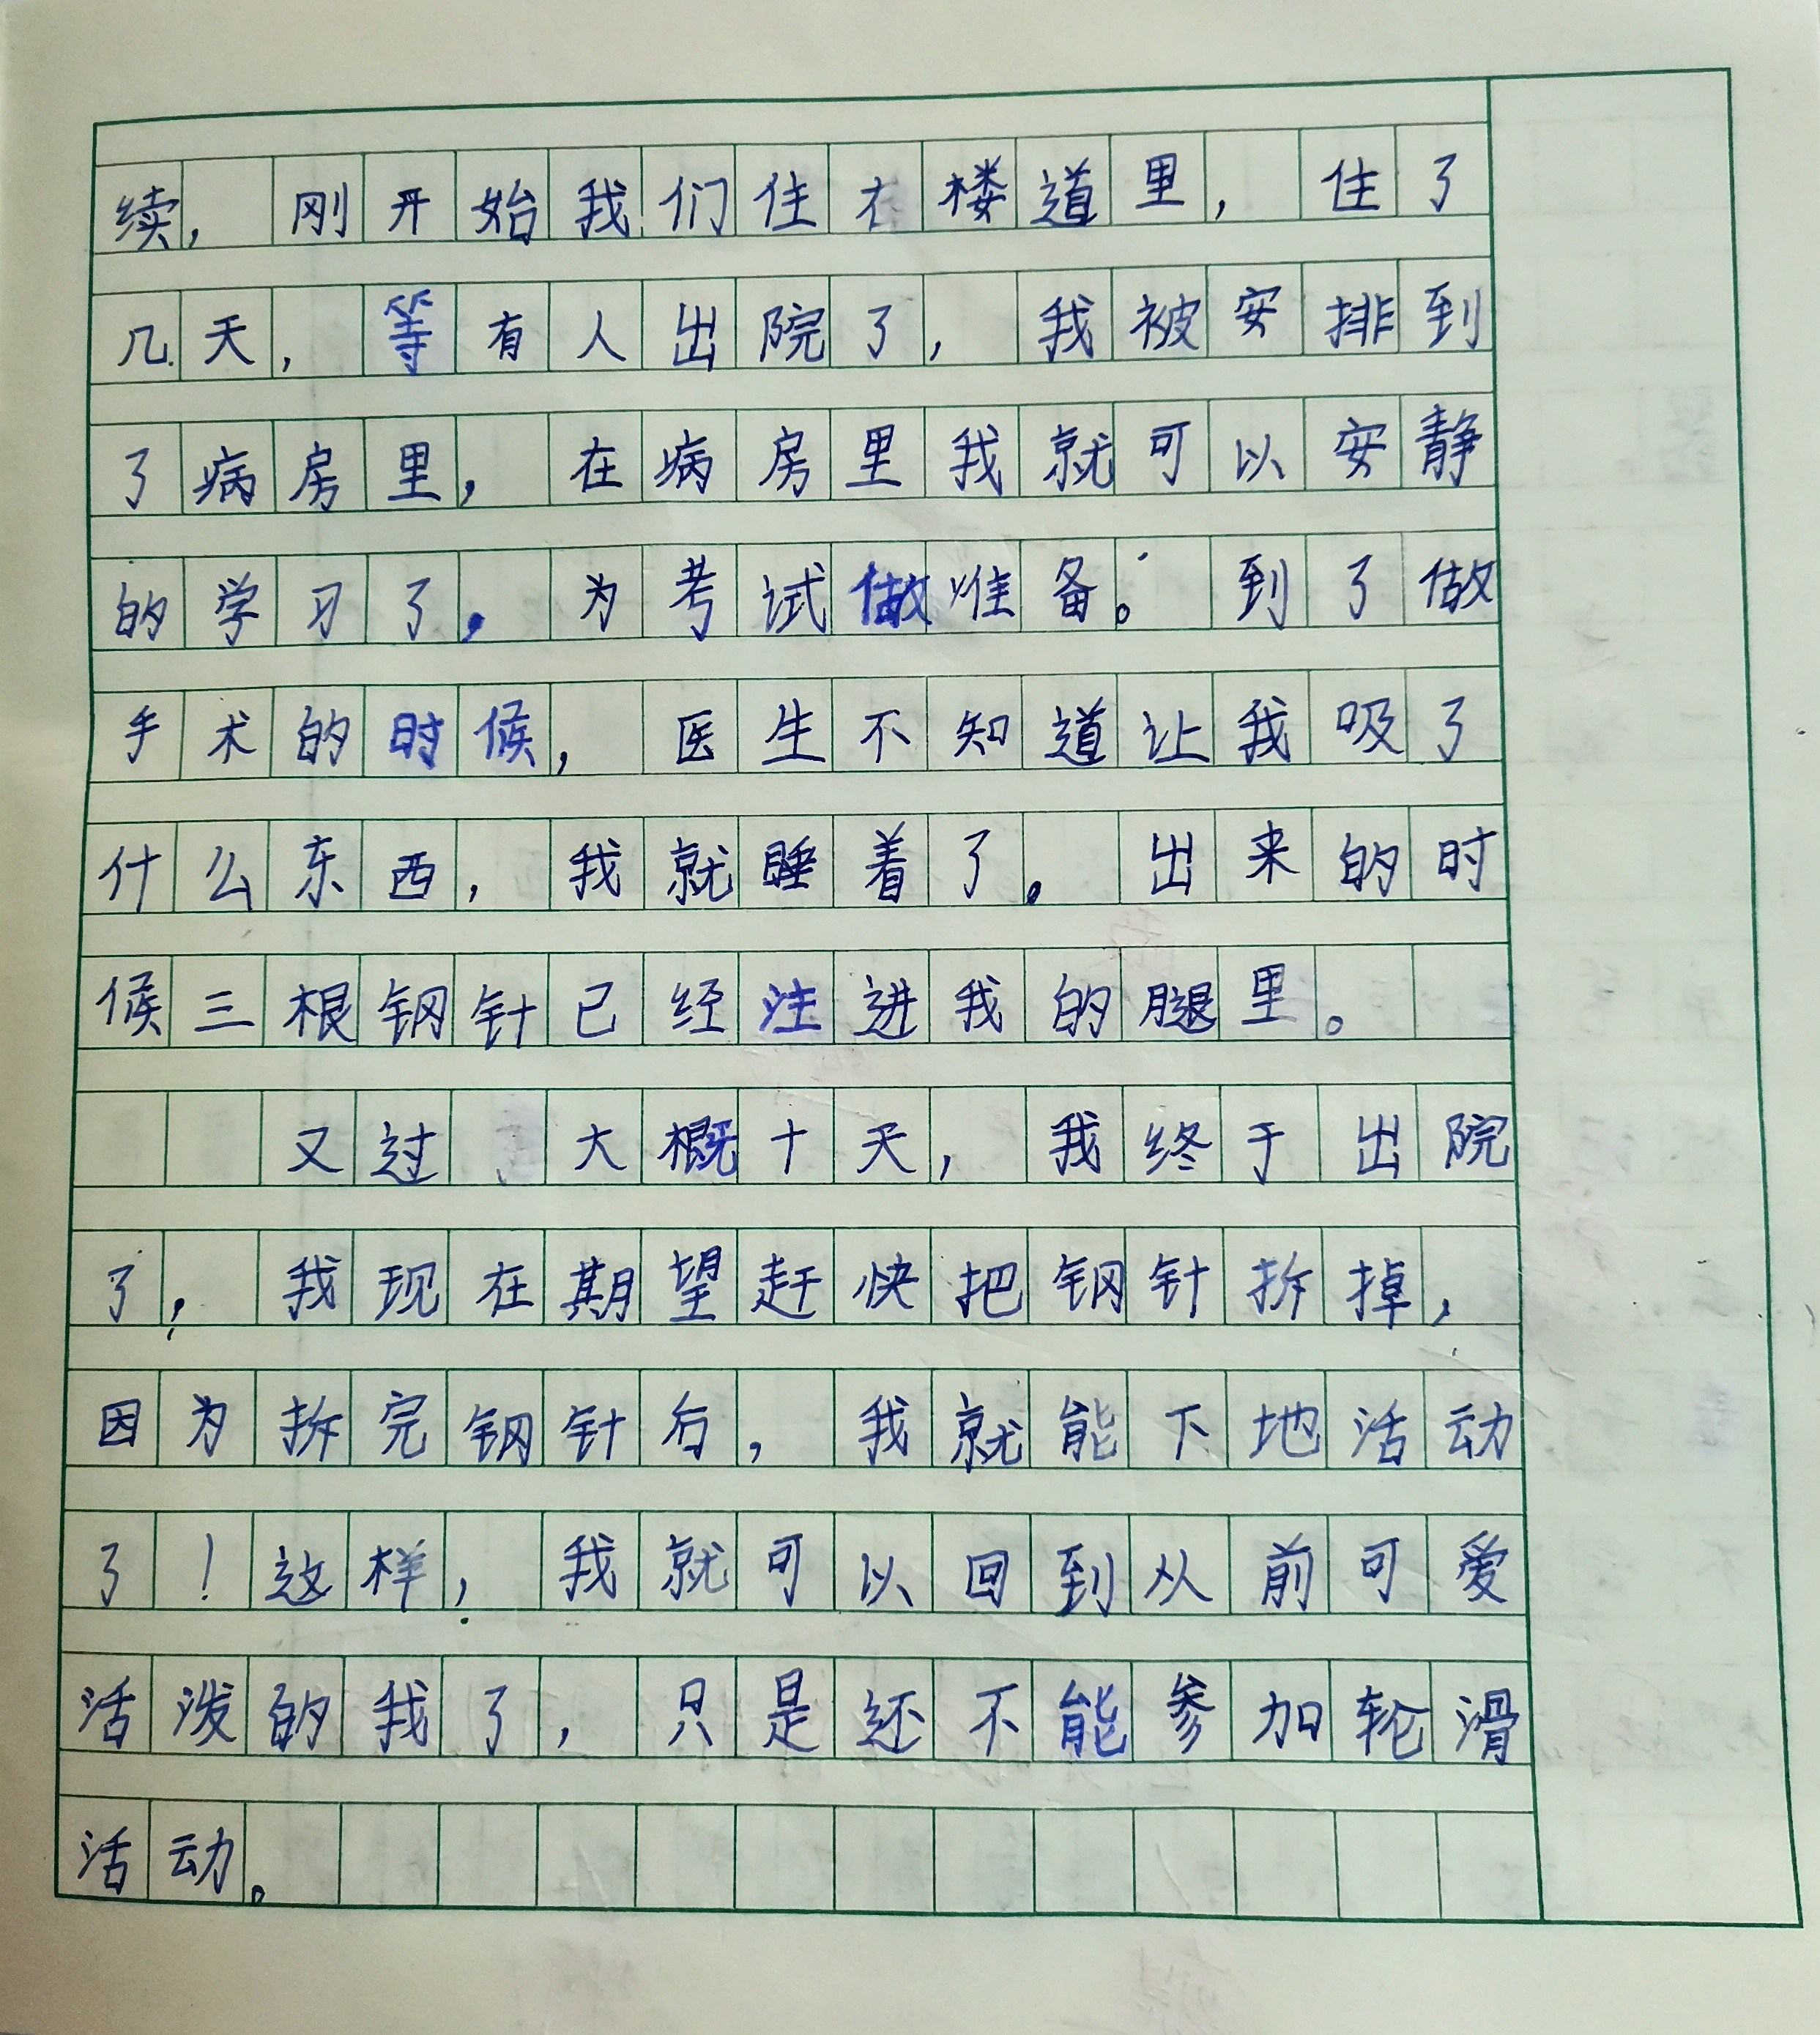 续，刚开始我们住在楼道里，住了
几天，等有人出院了，我被安排到
了病房里，在病房里我就可以安静
的学习了，为考试做准备。到了做
手术的时候，医生不知道让我吸了
什么东西，我就睡着了。出来的时
候三根钢针已经注进我的腿里。
又过大概十天，我终于出院
了，我现在期望赶快把钢针拆掉，
因为拆完钢针后，我就能下地活动
了！这样，我就可以回到从前可爱
活泼的我了，只是还不能参加轮滑
活动。